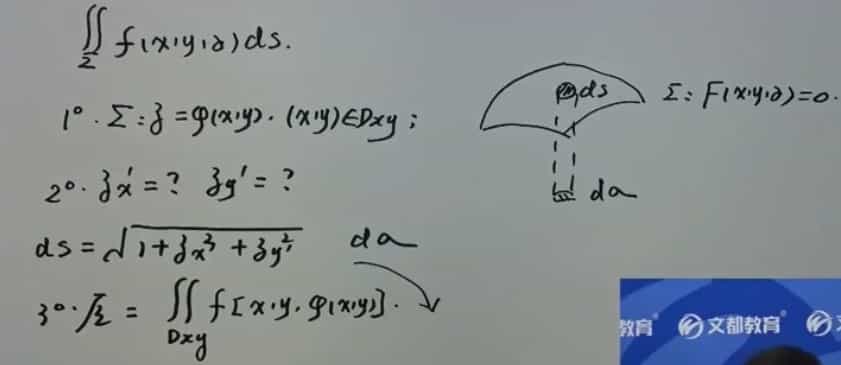 ∬_Σ f(x,y,z) ds.
1°. Σ: z = φ(x,y). (x,y)∈Dxy ;
2°. z'x = ? z'y = ?
ds = √(1 + z'x² + z'y²) da
3°. ∬_Σ = ∬_Dxy f[x,y,φ(x,y)].
ds
Σ: F(x,y,z)=0.
da
教育
文都教育